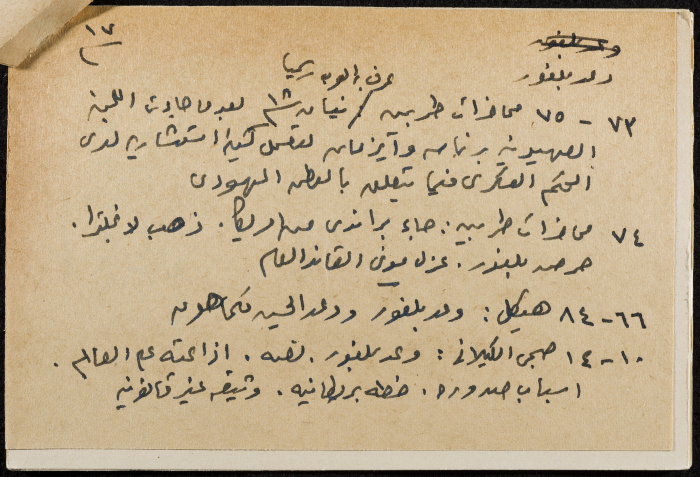 ١٧
وعد بلفور
وعد بلفور
عرف به العرب رسميا
٧٣ – ٧٥ محاضرات طربين / نيسان ١٨ بعدما جاءت اللجنة
الصهيونية برئاسة وايزمان لتعمل كهيئة استشارية لدى
الحكم العسكري فيما يتعلق بالوطن اليهودي
٧٤ محاضرات طربين: جاء براندي من امريكا. ذهب لانجلترا.
حرصه بلفور. عزل موني القائد العام
٦٦–٨٤ هيكل: وعد بلفور ووعد الحسين مكماهون
١٠–١٤ صبحي الكيلاني: وعد بلفور. نصه. اذاعته عم العالم.
اسباب صدوره. خطه بريطانيه. وثيقه غير قانونيه